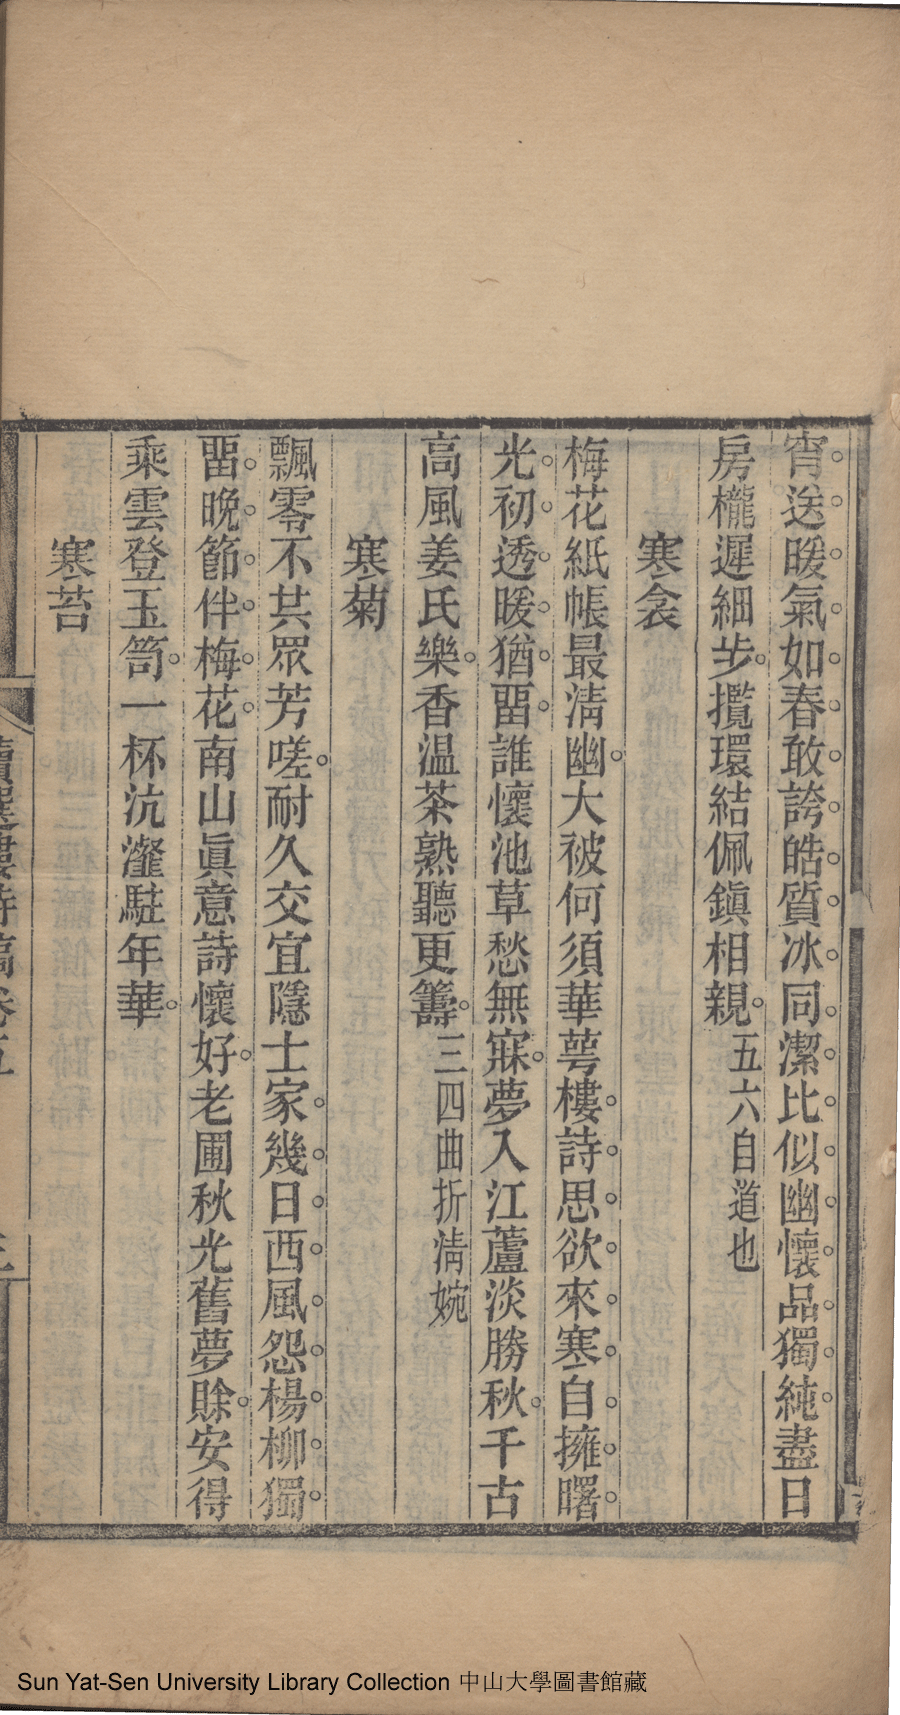 宵送暖氣如春敢誇皓質冰同潔比似幽懷品獨純盡日
房櫳遲細步攬環結佩鎮相親五六自道也
寒衾
梅花紙帳最淸幽大被何須華萼樓詩思欲來寒自擁曙
光初透暖猶畱誰懷池草愁無寐夢入江蘆淡勝秋千古
高風姜氏樂香温茶熟聽更籌三四曲折淸婉
寒菊
飄零不共眾芳嗟耐久交宜隱士家幾日西風怨楊柳獨
畱晚節伴梅花南山眞意詩懷好老圃秋光舊夢賒安得
乘雲登玉笥一杯沆瀣駐年華
寒苔
讀選樓詩稿卷五
三
Sun Yat-Sen University Library Collection 中山大學圖書館藏